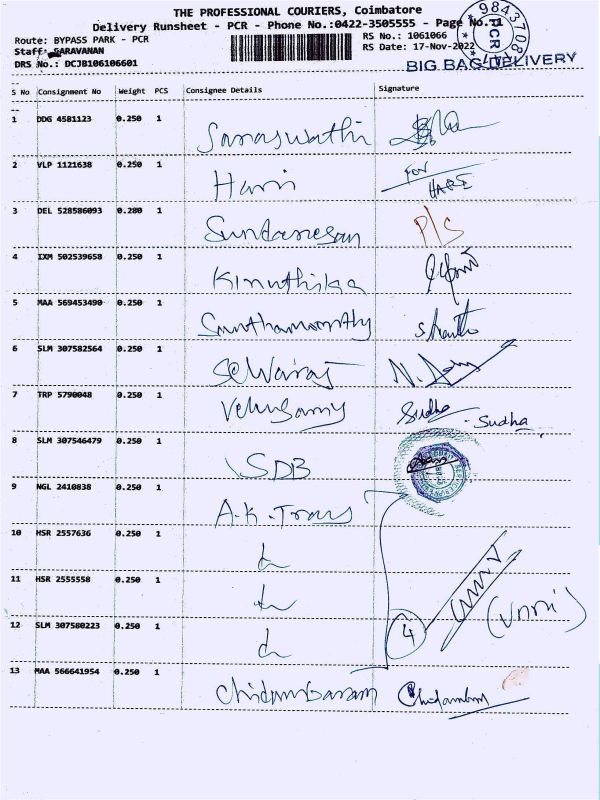 THE PROFESSIONAL COURIERS, Coimbatore
Delivery Runsheet - PCR - Phone No.:0422-3505555 - Page No.:1
Route: BYPASS PARK - PCR RS No.: 1061066
Staff: SARAVANAN RS Date: 17-Nov-2022
DRS No.: DCJB106106601
9843708
PCR
BIG BAG DELIVERY
S No Consignment No Weight PCS Consignee Details Signature
1 DDG 4581123 0.250 1 Saraswathi
2 VLP 1121638 0.250 1 Hari For HARE
3 DEL 528586093 0.280 1 Sundaresan P/S
4 IXM 502539658 0.250 1 Kiruthika
5 MAA 569453490 0.250 1 Santhamoorthy
6 SLM 307582564 0.250 1 Selvaraj
7 TRP 5790048 0.250 1 Velusamy Sudha - Sudha
8 SLM 307546479 0.250 1 SDB
9 NGL 2410838 0.250 1 A.K.Trans
10 HSR 2557636 0.250 1
11 HSR 2555558 0.250 1
12 SLM 307580223 0.250 1 4 (Unni)
13 MAA 566641954 0.250 1 Chidambaram Chidambram